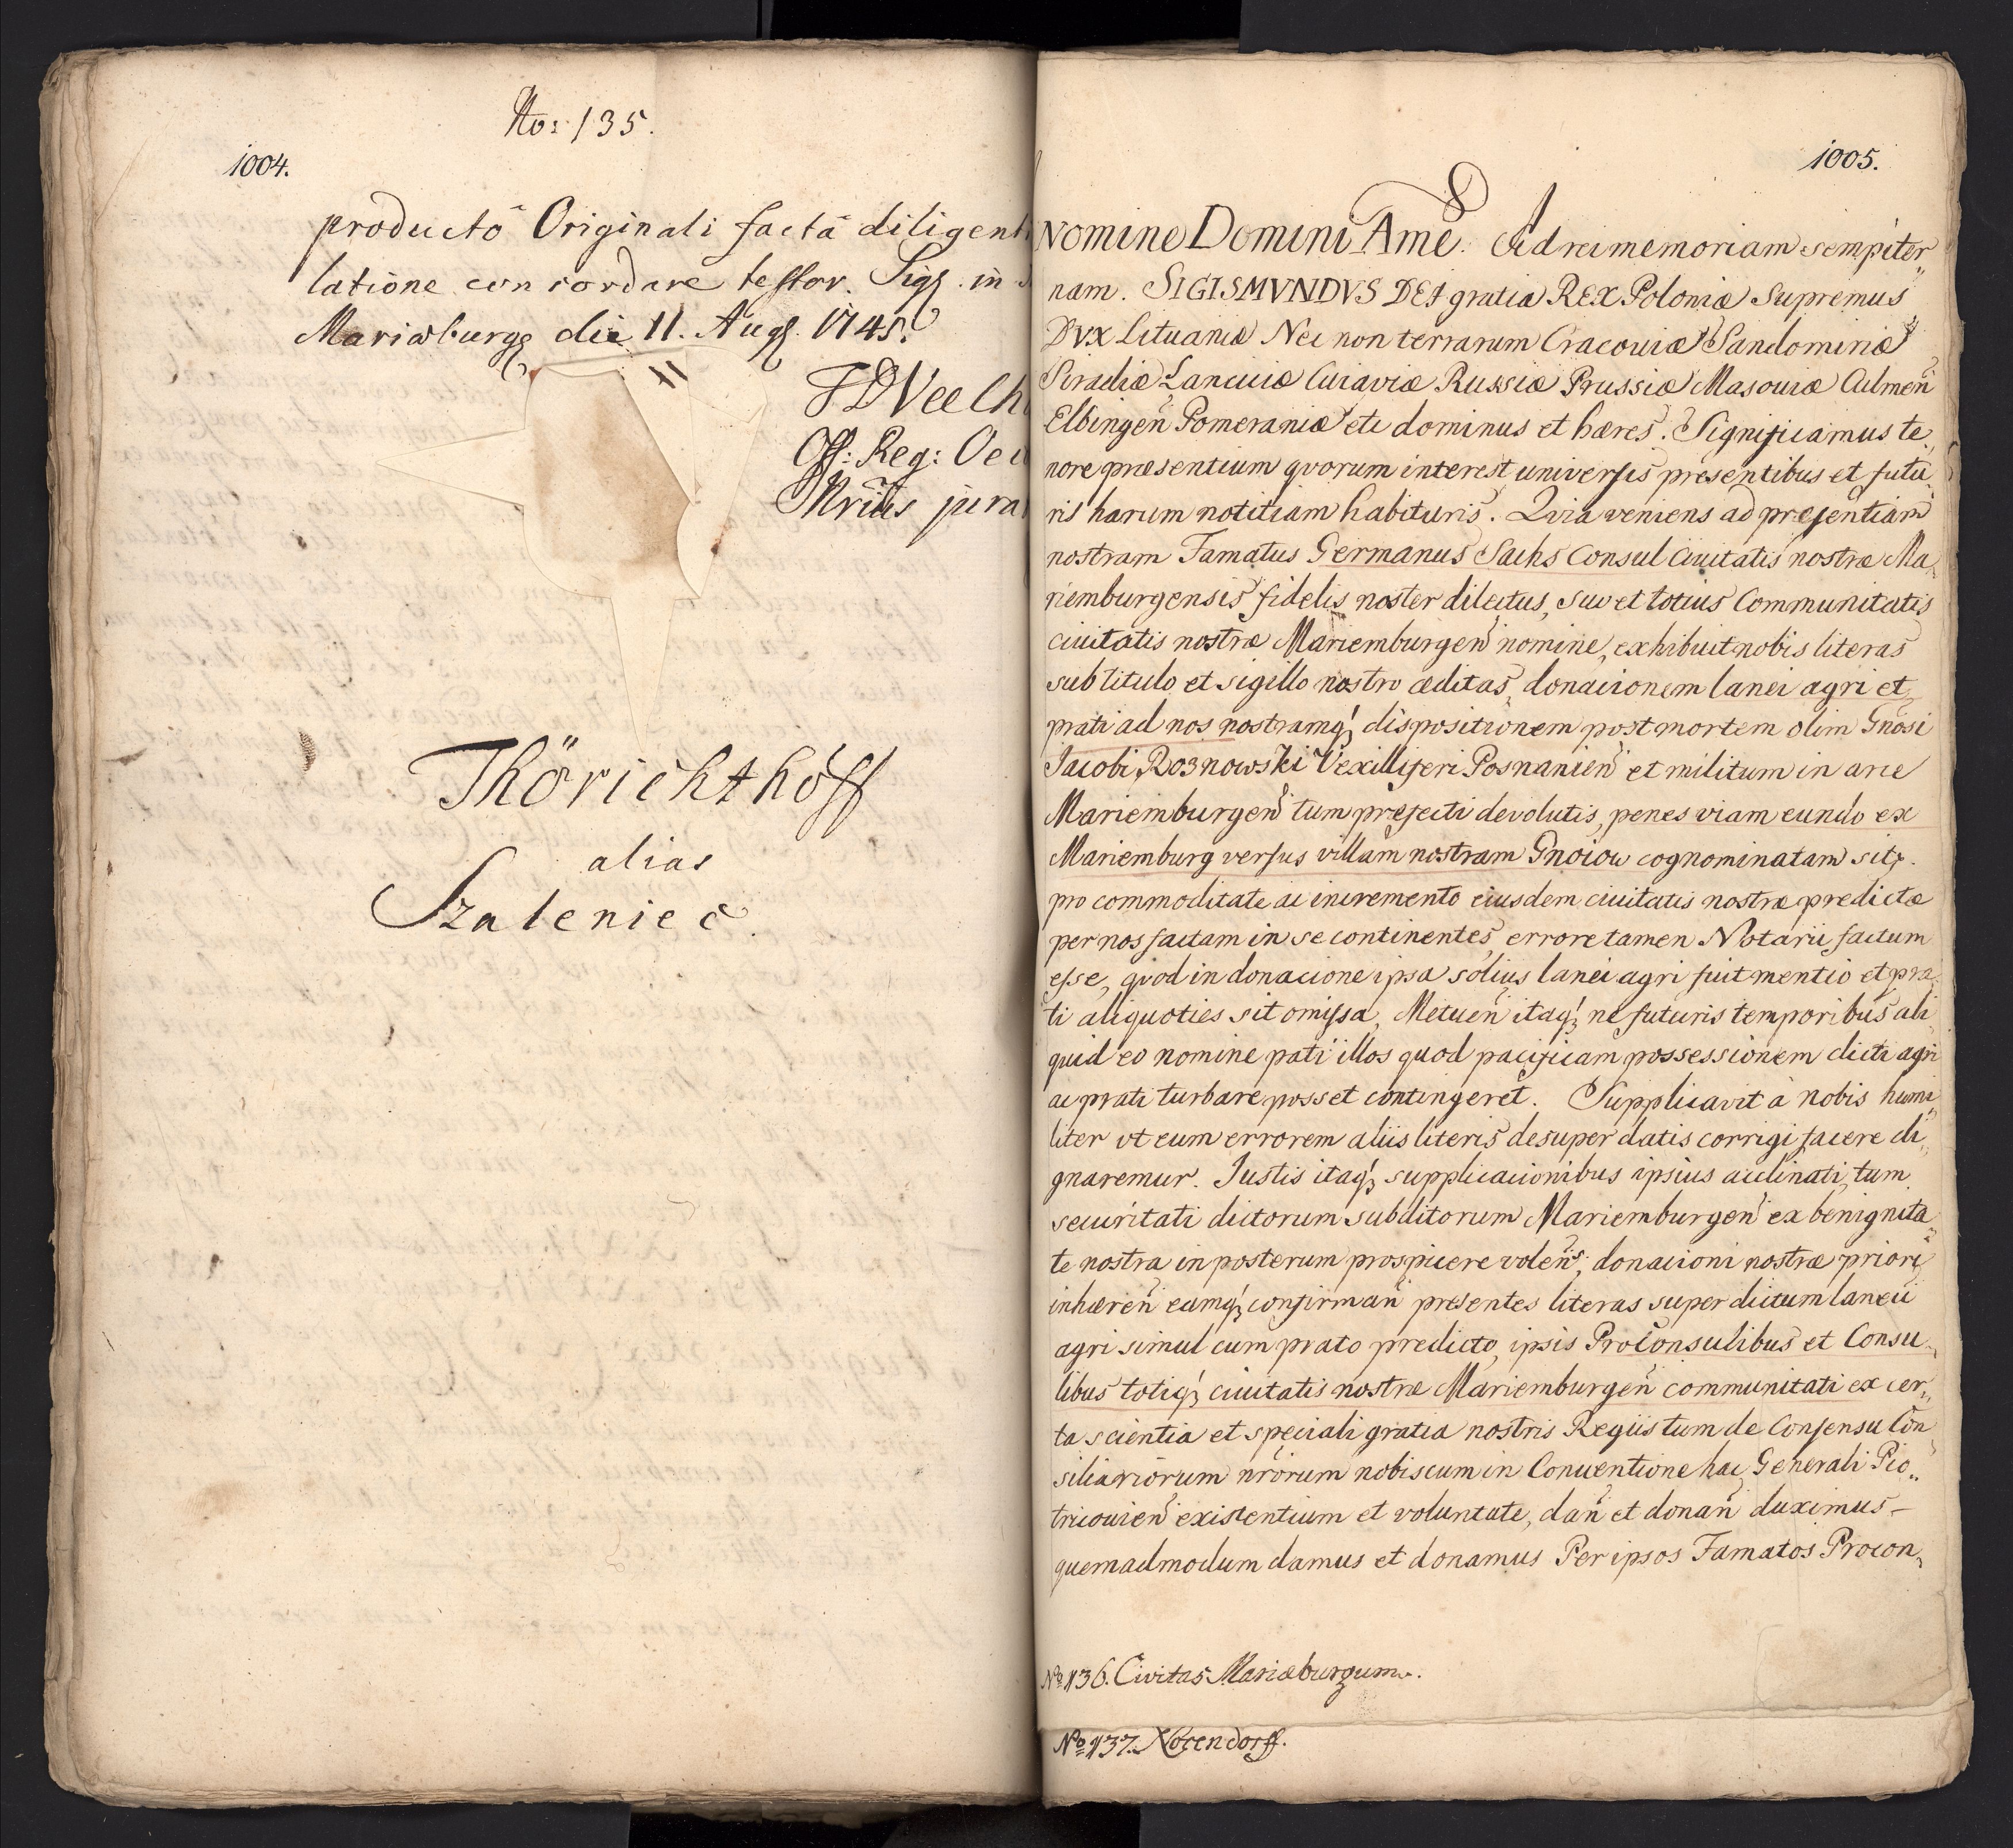 No: 135.
1004.
productô Originali factâ diligent
latione concordare testor. Sigl. in
Mariæburgs die 11. Augs. 1748.
Off: Reg: Oec
jura
Thörichthoff
alias
Szaleniec.
1005.
Nomine Domini Ame. Ad rei memoriam sempiter„
nam. SIGISMVNDVS DEI gratia REX Poloniæ Supremus
DVX Lituaniæ Nec non terrarum Cracouiæ Sandomiriæ
Siradiæ Lanciciæ Cuiaviæ Russiæ Prussiæ Masouiæ Culmen̄
Elbingen̄ Pomeraniæ etc dominus et hæres. Significamus te„
nore præsentium qvorum interest universis presentibus et futu„
ris harum notitiam habituris. Qvia veniens ad presentiam
nostram Famatus Germanus Sachs Consul Ciuitatis nostræ Ma„
riemburgensis fidelis noster dilectus, suo et totius Communitatis
ciuitatis nostræ Mariemburgen̄ nomine, exhibuit nobis literas
sub titulo et sigillo nostro æditas, donacionem lanei agri et
prati ad nos nostramq; dispositionem post mortem olim Gnosi
Iacobi Roznowski Vexilliferi Posnanien̄ et militum in arce
Mariemburgen̄ tum prefecti devolutis, penes viam eundo ex
Mariemburg versus villam nostram Gnoiow cognominatam sit.
pro commoditate ac incremento eiusdem ciuitatis nostræ predictæ
per nos factam in se continentes, errore tamen Notarii factum
esse, qvod in donacione ipsa solius lanei agri fuit mentio et pra„
ti aliquoties sit omissa, Metuen̄ itaq; ne futuris temporibus ali„
quid eo nomine pati illos quod pacificam possessionem dicti agri
ac prati turbare posset contingeret. Supplicavit à nobis humi„
liter vt eum errorem aliis literis desuper datis corrigi facere di„
gnaremur. Iustis itaq; supplicacionibus ipsius acclinati, tum
securitati dictorum subditorum Mariemburgen̄ ex benignita„
te nostra in posterum prospicere volen̄s, donacioni nostræ priori
inhæren̄ eamq; confirman̄ presentes literas super dictum laneū
agri simul cum prato predicto, ipsis Proconsulibus et Consu„
libus totiq; ciuitatis nostræ Mariemburgen̄ communitati ex cer„
ta scientia et speciali gratia nostris Regiis tum de Consensu Con
siliariorum nrōrum nobiscum in Conuentione hac Generali Pio„
tricouien̄ existentium et voluntate, dan̄ et donan̄ duximus –
quemadmodum damus et donamus Per ipsos Famatos Procon„
No 136. Civitas Mariæburgum.
No 137. Notendorff.